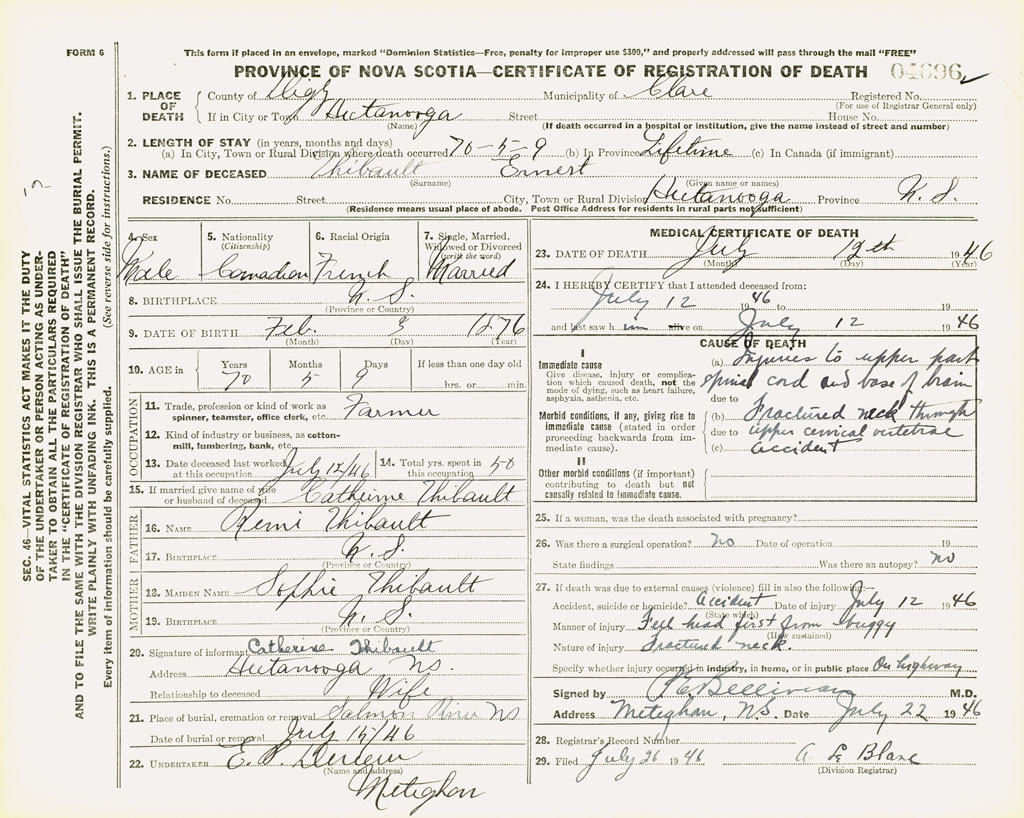 FORM 6
This form if placed in an envelope, marked "Dominion Statistics—Free, penalty for improper use $300," and properly addressed will pass through the mail "FREE"
PROVINCE OF NOVA SCOTIA—CERTIFICATE OF REGISTRATION OF DEATH 04696
1. PLACE OF DEATH
County of Digby Municipality of Clare Registered No.
(For use of Registrar General only)
If in City or Town Hectanooga Street House No.
(Name) (If death occurred in a hospital or institution, give the name instead of street and number)
2. LENGTH OF STAY (in years, months and days)
(a) In City, Town or Rural Division where death occurred 70-5-9 (b) In Province Lifetime (c) In Canada (if immigrant)
3. NAME OF DECEASED Thibault Ernest
(Surname) (Given name or names)
RESIDENCE No. Street City, Town or Rural Division Hectanooga Province N. S.
(Residence means usual place of abode. Post Office Address for residents in rural parts not sufficient)
4. Sex 5. Nationality 6. Racial Origin 7. Single, Married, Widowed or Divorced
(Citizenship) (write the word)
Male Canadian French Married
8. BIRTHPLACE N. S.
(Province or Country)
9. DATE OF BIRTH Feb. 3 1876
(Month) (Day) (Year)
10. AGE in Years Months Days If less than one day old
70 5 9 hrs. or min.
OCCUPATION
11. Trade, profession or kind of work as spinner, teamster, office clerk, etc. Farmer
12. Kind of industry or business, as cotton-mill, lumbering, bank, etc.
13. Date deceased last worked at this occupation July 12/46 14. Total yrs. spent in this occupation 50
15. If married give name of wife or husband of deceased Catherine Thibault
FATHER
16. NAME Remi Thibault
17. BIRTHPLACE N. S.
(Province or Country)
MOTHER
18. MAIDEN NAME Sophie Thibault
19. BIRTHPLACE N. S.
(Province or Country)
20. Signature of informant Catherine Thibault
Address Hectanooga NS.
Relationship to deceased Wife
21. Place of burial, cremation or removal Salmon River NS
Date of burial or removal July 15/46
22. UNDERTAKER E.
(Name and address)
Meteghan
MEDICAL CERTIFICATE OF DEATH
23. DATE OF DEATH July 12th 1946
(Month) (Day) (Year)
24. I HEREBY CERTIFY that I attended deceased from:
July 12 1946 to 19
and last saw h im alive on July 12 1946
CAUSE OF DEATH
I
Immediate cause
Give disease, injury or complication which caused death, not the mode of dying, such as heart failure, asphyxia, asthenia, etc.
(a) Injuries to upper part
spinal cord and base of brain
due to
Morbid conditions, if any, giving rise to immediate cause (stated in order proceeding backwards from immediate cause).
(b) Fractured neck through
due to upper cervical vertebrae
(c) accident
II
Other morbid conditions (if important) contributing to death but not causally related to immediate cause.
25. If a woman, was the death associated with pregnancy?
26. Was there a surgical operation? no Date of operation 19
State findings Was there an autopsy? no
27. If death was due to external causes (violence) fill in also the following:
Accident, suicide or homicide? Accident Date of injury July 12 1946
(State which)
Manner of injury Fell head first from buggy
(How sustained)
Nature of injury Fractured neck.
Specify whether injury occurred in industry, in home, or in public place On highway
Signed by P E Belliveau M.D.
Address Meteghan, N.S. Date July 22 1946
28. Registrar's Record Number
29. Filed July 26 1946 A. Le Blanc
(Division Registrar)
SEC. 46—VITAL STATISTICS ACT MAKES IT THE DUTY
OF THE UNDERTAKER OR PERSON ACTING AS UNDER-
TAKER TO OBTAIN ALL THE PARTICULARS REQUIRED
IN THE "CERTIFICATE OF REGISTRATION OF DEATH"
AND TO FILE THE SAME WITH THE DIVISION REGISTRAR WHO SHALL ISSUE THE BURIAL PERMIT.
WRITE PLAINLY WITH UNFADING INK. THIS IS A PERMANENT RECORD.
Every item of information should be carefully supplied. (See reverse side for instructions.)